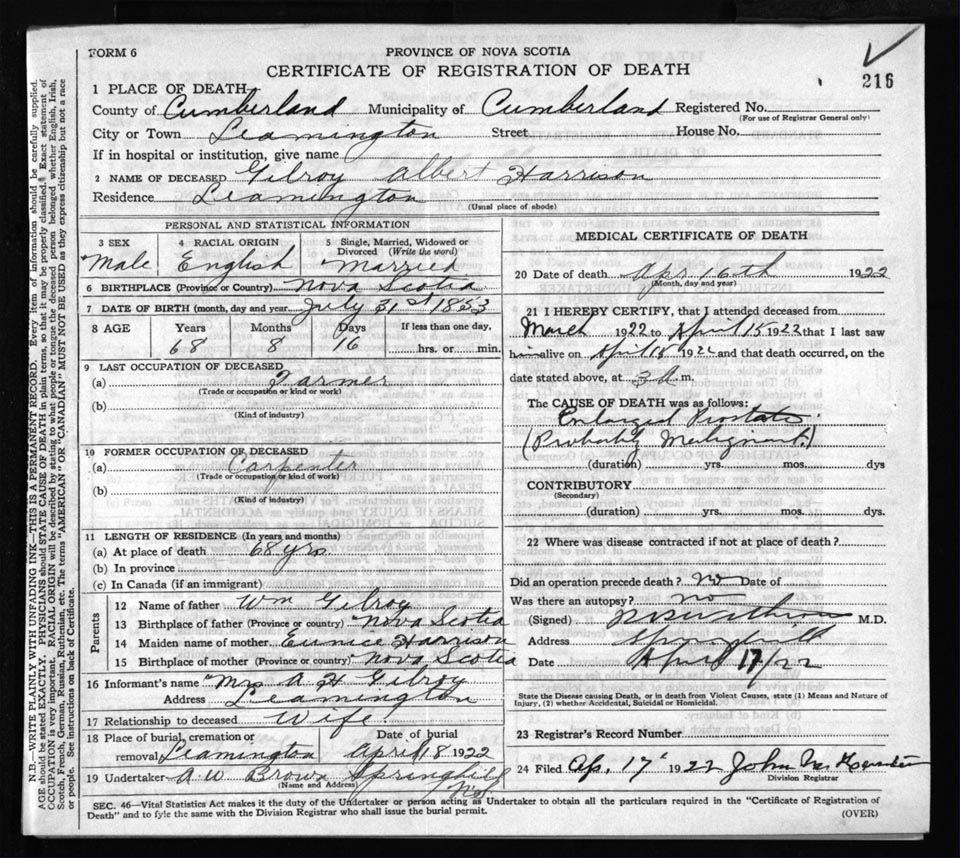 FORM 6
PROVINCE OF NOVA SCOTIA
CERTIFICATE OF REGISTRATION OF DEATH
216
1 PLACE OF DEATH
County of Cumberland Municipality of Cumberland Registered No.
(For use of Registrar General only)
City or Town Leamington Street House No.
If in hospital or institution, give name
2 NAME OF DECEASED Gilroy Albert Harrison
Residence Leamington
(Usual place of abode)
PERSONAL AND STATISTICAL INFORMATION
3 SEX 4 RACIAL ORIGIN 5 Single, Married, Widowed or Divorced (Write the word)
Male English Married
6 BIRTHPLACE (Province or Country) Nova Scotia
7 DATE OF BIRTH (month, day and year) July 31st 1853
8 AGE Years Months Days If less than one day,
68 8 16 hrs. or min.
9 LAST OCCUPATION OF DECEASED
(a) Farmer
(Trade or occupation or kind of work)
(b)
(Kind of industry)
10 FORMER OCCUPATION OF DECEASED
(a) Carpenter
(Trade or occupation or kind of work)
(b)
(Kind of industry)
11 LENGTH OF RESIDENCE (In years and months)
(a) At place of death 68 yrs
(b) In province
(c) In Canada (if an immigrant)
Parents
12 Name of father Wm Gilroy
13 Birthplace of father (Province or country) Nova Scotia
14 Maiden name of mother Eunice Harrison
15 Birthplace of mother (Province or country) Nova Scotia
16 Informant's name Mrs A H Gilroy
Address Leamington
17 Relationship to deceased Wife
18 Place of burial, cremation or removal Leamington Date of burial April 18 1922
19 Undertaker A W Brown Springhill N.S.
(Name and Address)
MEDICAL CERTIFICATE OF DEATH
20 Date of death Apr 16th 1922
(Month, day and year)
21 I HEREBY CERTIFY, that I attended deceased from
March 1922 to April 15 1922 that I last saw
him alive on April 15 1922 and that death occurred, on the
date stated above, at 3 A m.
The CAUSE OF DEATH was as follows:
Enlarged Prostate
(Probably Malignant)
(duration) yrs. mos. dys
CONTRIBUTORY
(Secondary)
(duration) yrs. mos. dys.
22 Where was disease contracted if not at place of death?
Did an operation precede death? no Date of
Was there an autopsy? no
(Signed) M.D.
Address Springhill
Date April 17/22
State the Disease causing Death, or in death from Violent Causes, state (1) Means and Nature of
Injury, (2) whether Accidental, Suicidal or Homicidal.
23 Registrar's Record Number
24 Filed Ap. 17 1922 John
Division Registrar
SEC. 46—Vital Statistics Act makes it the duty of the Undertaker or person acting as Undertaker to obtain all the particulars required in the "Certificate of Registration of
Death" and to fyle the same with the Division Registrar who shall issue the burial permit.
(OVER)
N.B.—WRITE PLAINLY WITH UNFADING INK—THIS IS A PERMANENT RECORD. Every item of information should be carefully supplied.
AGE should be stated EXACTLY. PHYSICIANS should STATE CAUSE OF DEATH in plain terms, so that it may be properly classified. Exact statement of
OCCUPATION is very important. RACIAL ORIGIN will be described by stating to what people or tongue the deceased person belonged whether English, Irish,
Scotch, French, German, Russian, Ruthenian, etc. The terms "AMERICAN" OR "CANADIAN" MUST NOT BE USED as they express citizenship but not a race
or people. See instructions on back of Certificate.